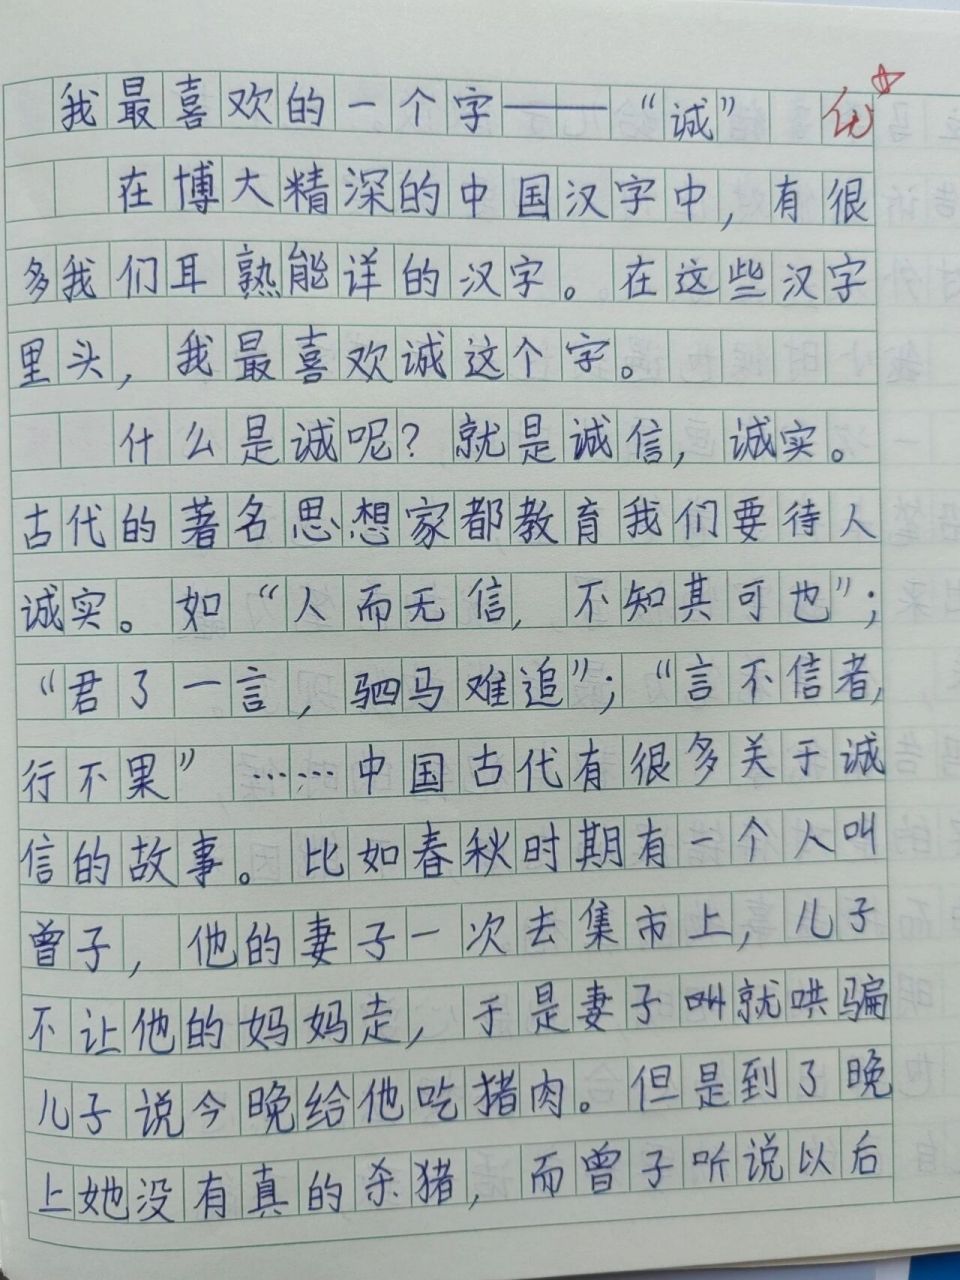 我最喜欢的一个字——“诚” 优☆
在博大精深的中国汉字中，有很
多我们耳熟能详的汉字。在这些汉字
里头，我最喜欢诚这个字。
什么是诚呢？就是诚信，诚实。
古代的著名思想家都教育我们要待人
诚实。如“人而无信，不知其可也”；
“君了一言，驷马难追”；“言不信者，
行不果”……中国古代有很多关于诚
信的故事。比如春秋时期有一个人叫
曾子，他的妻子一次去集市上，儿子
不让他的妈妈走，于是妻子叫就哄骗
儿子说今晚给他吃猪肉。但是到了晚
上她没有真的杀猪，而曾子听说以后